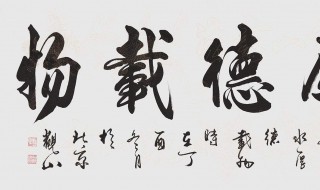 德載物
水厚
德
載物
時
在丁
酉
冬月
於
北京
觀山